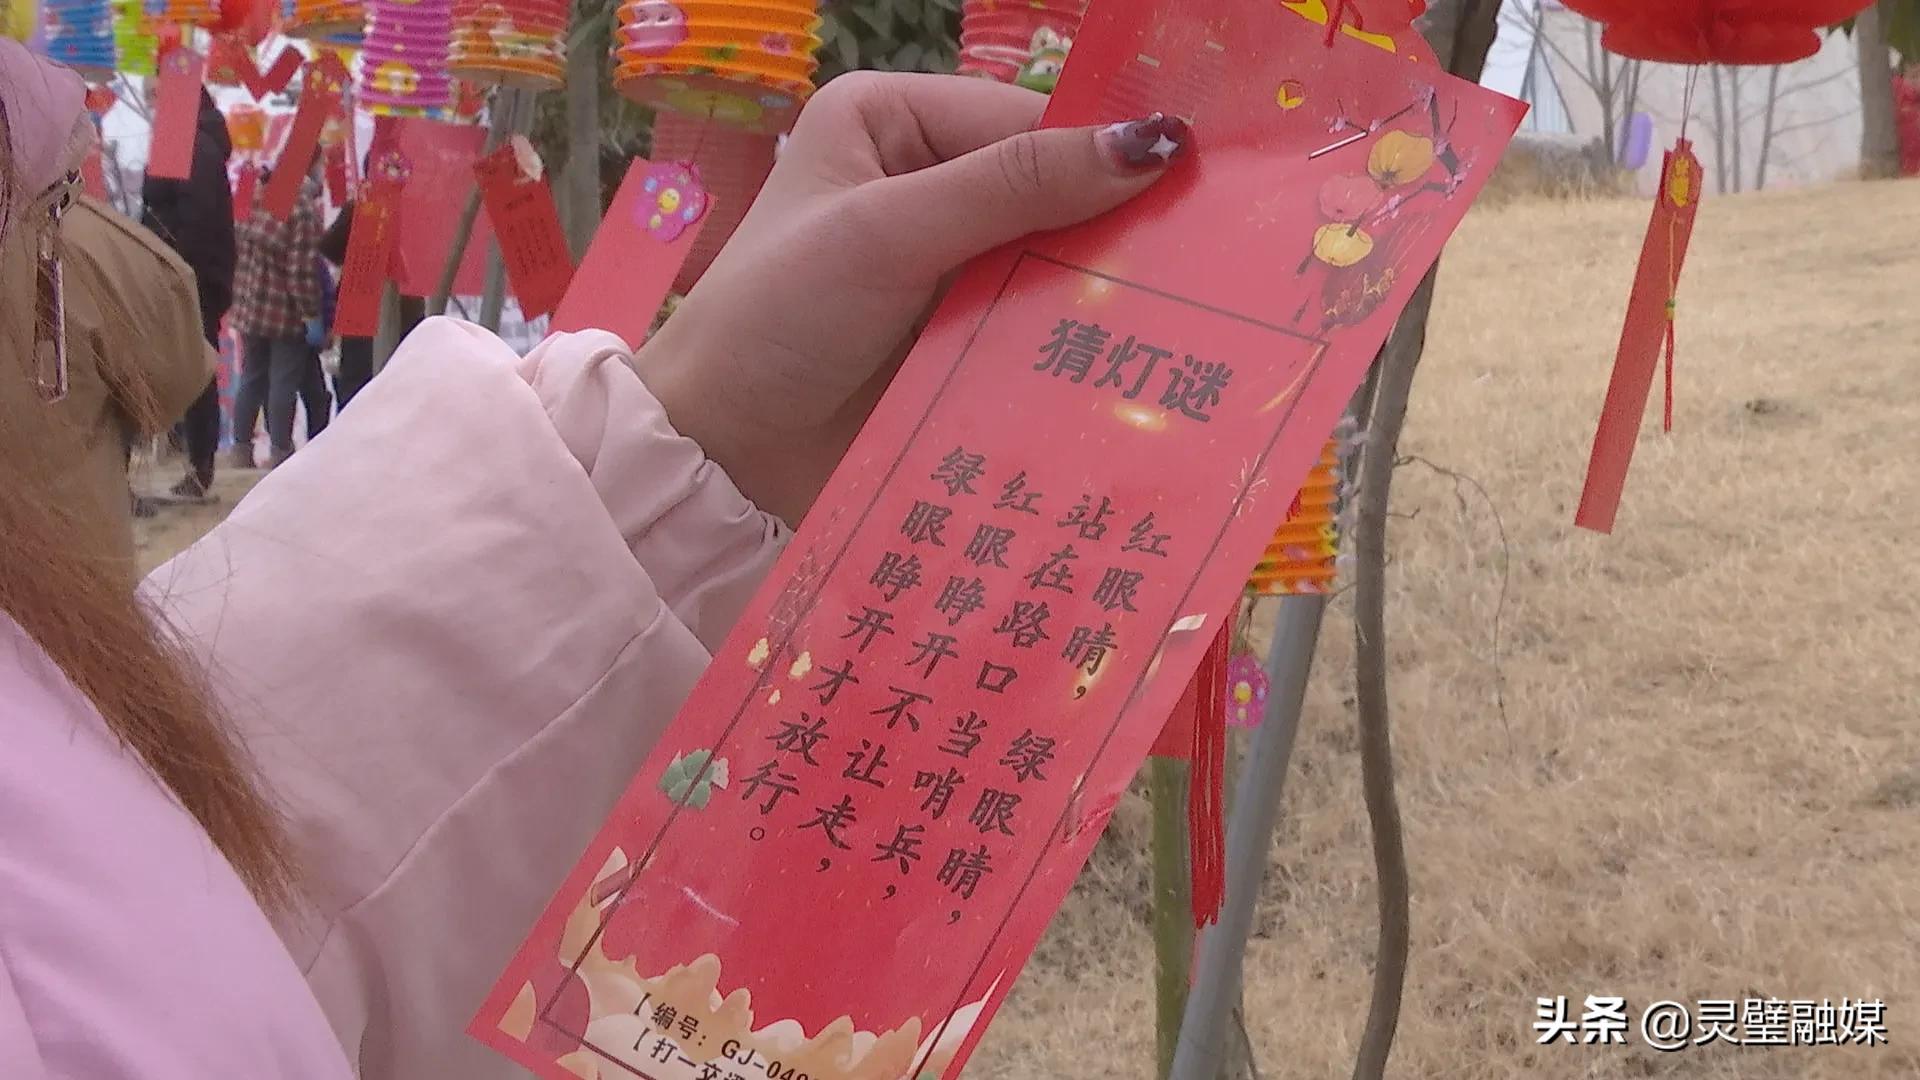 猜灯谜
红眼睛，绿眼睛，
站在路口当哨兵，
红眼睁开不让走，
绿眼睁开才放行。
【编号：GJ-049
【打一交通
头条 @灵璧融媒